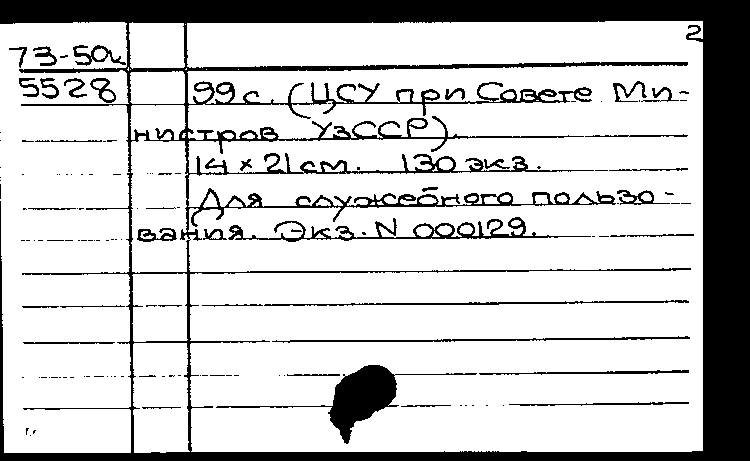 2
73-50к
5528 99 с. (ЦСУ при Совете Ми-
нистров УзССР).
14 × 21 см. 130 экз.
Для служебного пользо-
вания. Экз. N 000129.